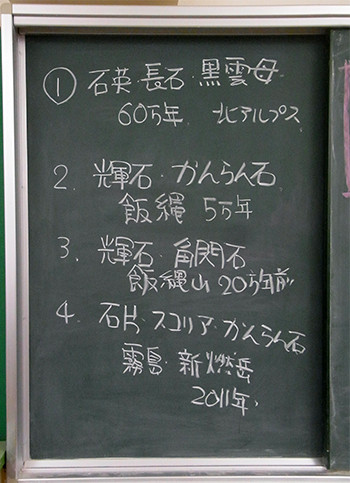 ① 石英・長石・黒雲母
60万年 北アルプス
2. 輝石・かんらん石
飯縄 5万年
3. 輝石・角閃石
飯縄山 20万年前
4. 石片・スコリア・かんらん石
霧島・新燃岳
2011年